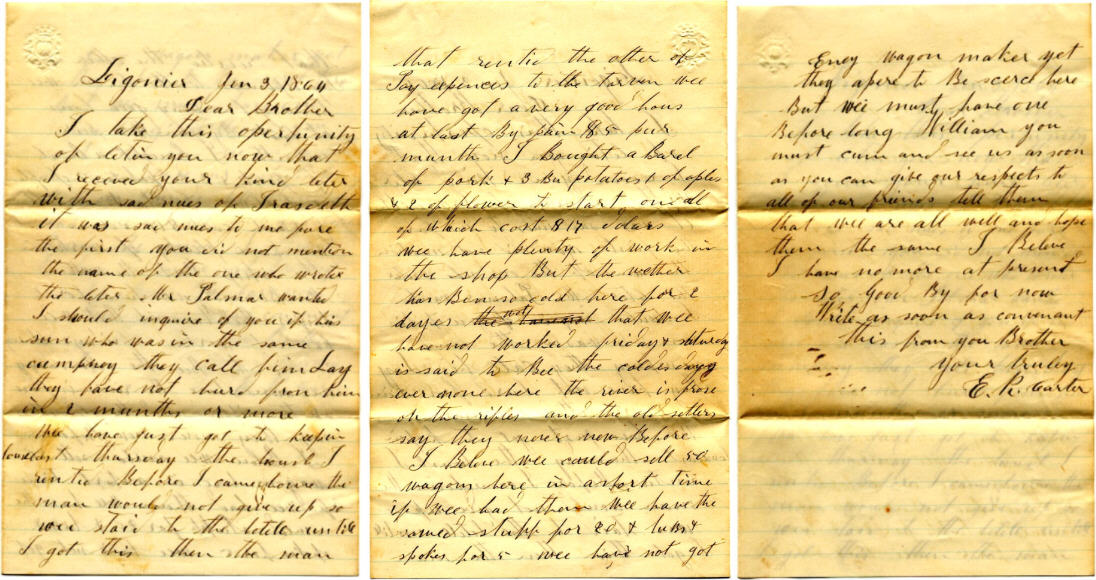 Ligonier Jan 3, 1864
Dear Brother
I take this opertunity
of letin you now that
I received your kind leter
with sad nues of
it was sad nues to me
the first you did not mention
the name of the one who wrote
the leter Mr Palmar wanted
I should inquire of you if his
sun who was in the same
cumpnoy they call him Lay
they have not hurd from him
in 2 munths or more
Wee have just got to keepin
house last thursday the house I
rentid Before I came home the
man would not give up so
wee staid to the until
I got this then the man
that rentid the other of
Pay expences to the tarven wee
have got a very good hous
at last By pain $5 pur
munth I Bought a Barel
of pork & 3 Bu potatoes & of aples
& 2 of flower to start on all
of which cost $17 dolars
wee have plenty of work in
the shop But the wether
has Ben so cold here for 2
dayes that wee
have not worked friday & saturday
is said to Bee the coldes dayes
ever none here the river is frose
on the rifles and the old setlers
say they never now Before
I Beleve wee could sell 50
wagons here in a short time
if wee had them wee have the
sawed stuff for 20 & hubs &
spokes for 5 wee have not got
Eney wagon maker yet
they apere to Be scerce here
But wee must have one
Before long William you
must cum and see us as soon
as you can give our respects to
all of our friends tell them
that wee are all well and hope
them the same I Beleve
I have no more at present
so Good By for now
Write as soon as convenant
this from you Brother
Your truley
E. R. Carter